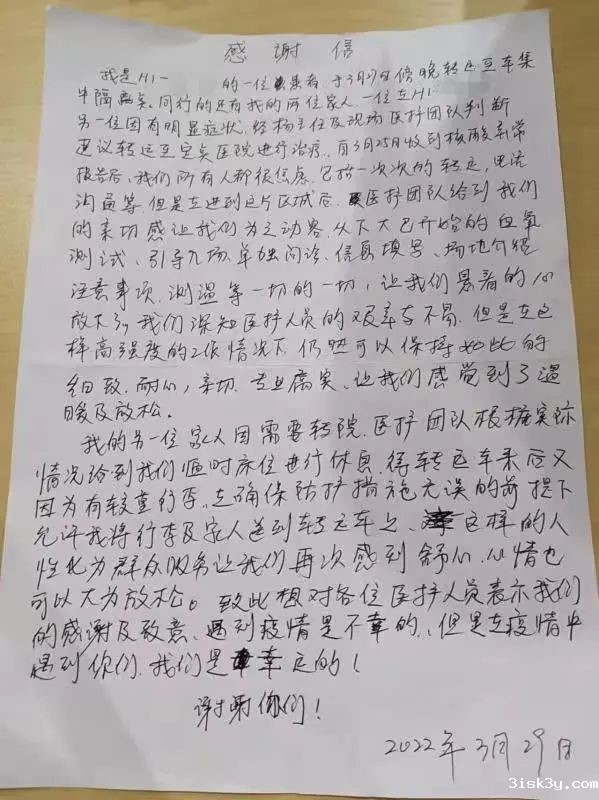 感谢信
我是H1- 的一位患者,于3月29日傍晚转运至车集
中隔离点。同行的还有我的两位家人,一位在H1-
另一位因有明显症状,经杨主任及现场医护团队判断
建议转运至定点医院进行治疗。自3月25日收到核酸异常
报告后,我们所有人都很焦虑,包括一次次的转运,电话
沟通等,但是在进到这片区域后,医护团队给到我们
的亲切感让我们为之动容,从下大巴开始的血氧
测试、引导入场、单独问诊、信息填写、场地介绍
注意事项、测温等一切的一切,让我们悬着的心
放下了。我们深知医护人员的艰辛与不易,但是在这
样高强度的工作情况下,仍然可以保持如此的
细致、耐心,亲切,专业落实、让我们感觉到了温
暖及放松。
我的另一位家人因需要转院,医护团队根据实际
情况给到我们临时床位进行休息,待转运车来后又
因为有较重行李,在确保防护措施无误的前提下
允许我将行李及家人送到转运车上、这样的人
性化为群众服务让我们再次感到舒心,心情也
可以大为放松。致此想对各位医护人员表示我们
的感谢及致意、遇到疫情是不幸的,但是在疫情中
遇到你们,我们是幸运的!
谢谢你们!
2022年3月29日
3isk3y.com